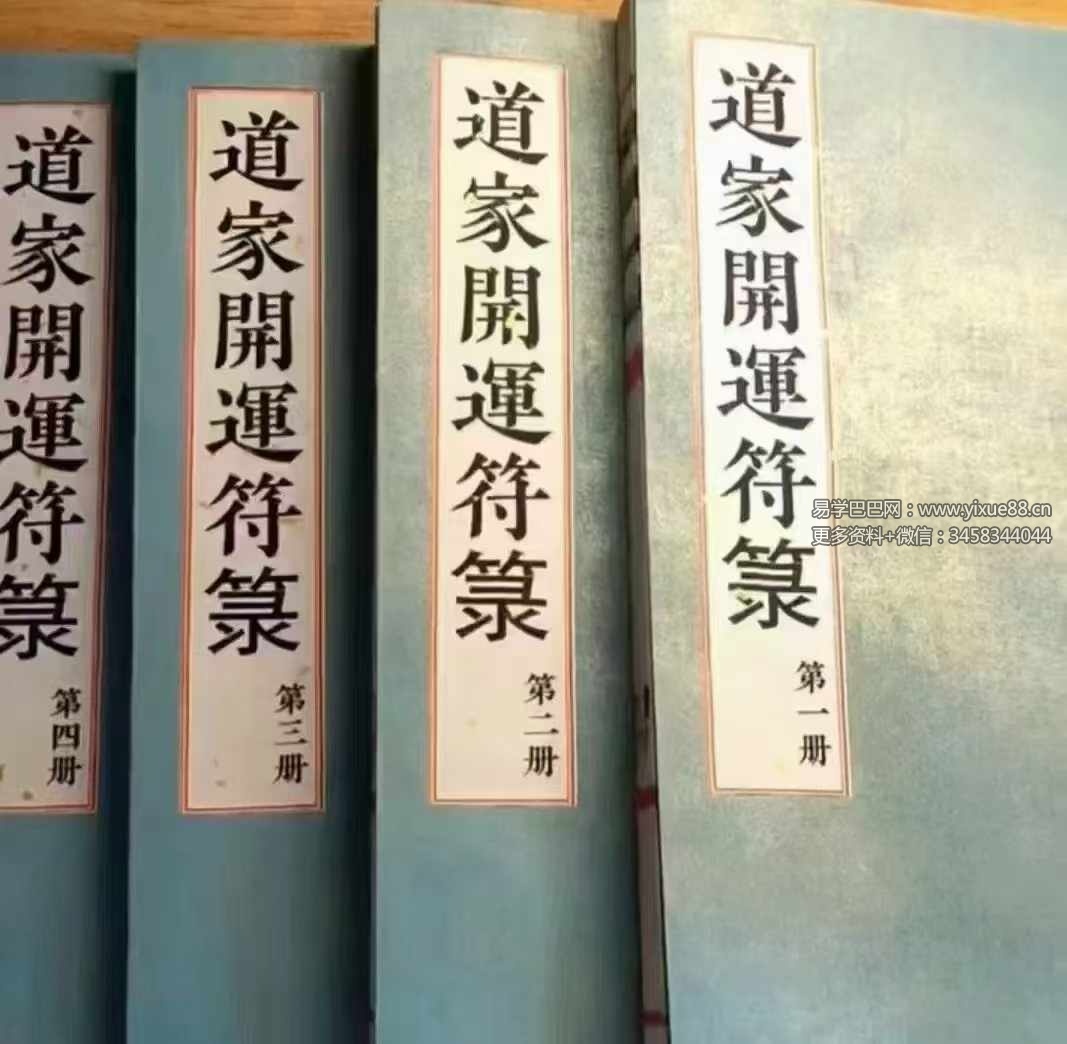 道家開運符箓
第一册
道家開運符箓
第二册
道家開運符箓
第三册
道家開運符箓
第四册
易学巴巴网：www.yixue88.cn
更多资料+微信：3458344044